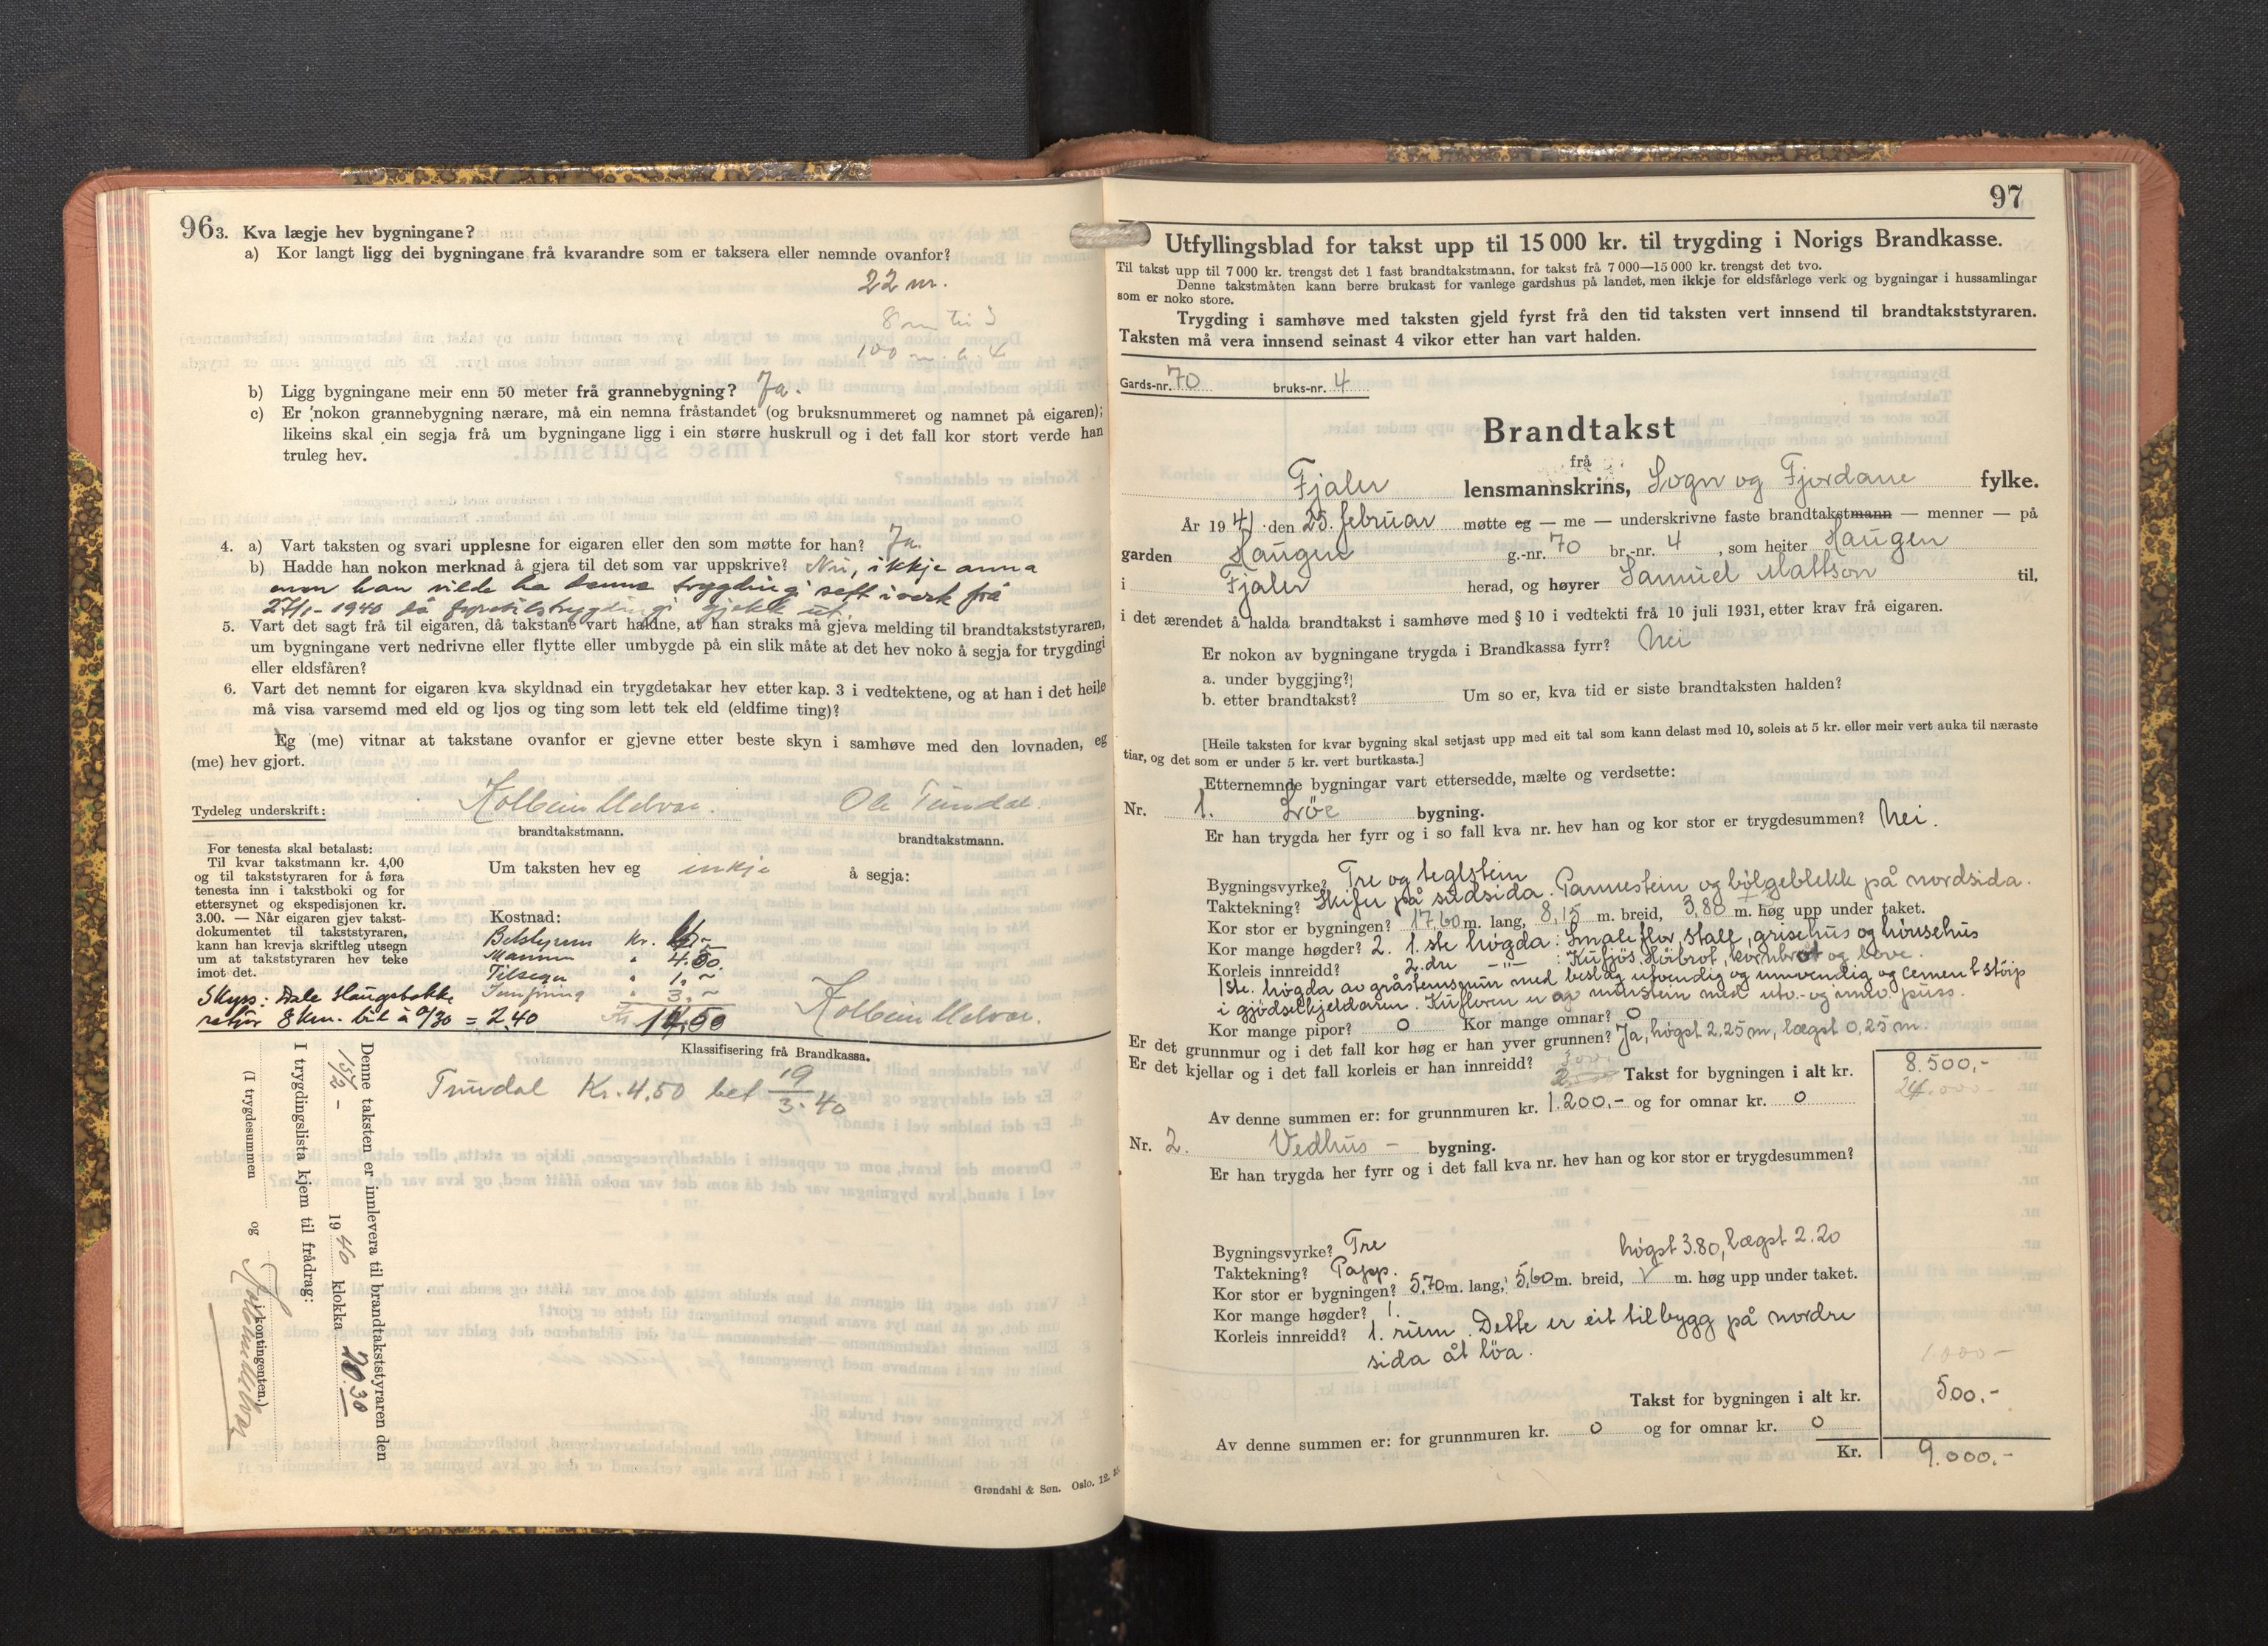 96
3. Kva lægje hev bygningane?
a) Kor langt ligg dei bygningane frå kvarandre som er taksera eller nemnde ovanfor?
22 m.
8 m til 3
100 m
b) Ligg bygningane meir enn 50 meter frå grannebygning? Ja.
c) Er nokon grannebygning nærare, må ein nemna fråstandet (og bruksnummeret og namnet på eigaren);
likeins skal ein segja frå um bygningane ligg i ein større huskrull og i det fall kor stort verde han
truleg hev.
4. a) Vart taksten og svari upplesne for eigaren eller den som møtte for han? Ja.
b) Hadde han nokon merknad å gjera til det som var uppskrive? Nei, ikkje anna
enn han vilde ha denne trygdingi sett i verk frå
27/1-1940 då fyretilstrygdingi gjekk ut.
5. Vart det sagt frå til eigaren, då takstane vart haldne, at han straks må gjeva melding til brandtakststyraren,
um bygningane vert nedrivne eller flytte eller umbygde på ein slik måte at det hev noko å segja for trygdingi
eller eldsfåren?
6. Vart det nemnt for eigaren kva skyldnad ein trygdetakar hev etter kap. 3 i vedtektene, og at han i det heile
må visa varsemd med eld og ljos og ting som lett tek eld (eldfime ting)?
Eg (me) vitnar at takstane ovanfor er gjevne etter beste skyn i samhøve med den lovnaden, eg
(me) hev gjort.
Tydeleg underskrift: Kolbein Ole
brandtakstmann. brandtakstmann.
For tenesta skal betalast:
Til kvar takstmann kr. 4,00
og til takststyraren for å føra
tenesta inn i takstboki og for
ettersynet og ekspedisjonen kr.
3.00. — Når eigaren gjev takst-
dokumentet til takststyraren,
kann han krevja skriftleg utsegn
um at takststyraren hev teke
imot det.
Um taksten hev eg inkje å segja:
Kostnad:
Kr.
4.50
1.-
3.-
Skyss: Dale Haugsbakke
retur 8 km. bil à 0/30 = 2.40
Kolbein
Klassifisering frå Brandkassa.
Trudal Kr. 4.50 bet 19/3-40
Denne taksten er innlevera til brandtakststyraren den
15/2 - 1940 klokka 20.30
I trygdingslista kjem til frådrag:
(I trygdesummen og i kontingenten)
Grøndahl & Søn. Oslo. 12.
97
Utfyllingsblad for takst upp til 15 000 kr. til trygding i Norigs Brandkasse.
Til takst upp til 7 000 kr. trengst det 1 fast brandtakstmann, for takst frå 7 000—15 000 kr. trengst det tvo.
Denne takstmåten kann berre brukast for vanlege gardshus på landet, men ikkje for eldsfårlege verk og bygningar i hussamlingar
som er noko store.
Trygding i samhøve med taksten gjeld fyrst frå den tid taksten vert innsend til brandtakststyraren.
Taksten må vera innsend seinast 4 vikor etter han vart halden.
Gards-nr. 70 bruks-nr. 4
Brandtakst
frå
Fjaler lensmannskrins, Sogn og Fjordane fylke.
År 1941 den 25. februar møtte eg — me — underskrivne faste brandtakstmann — menner — på
garden Haugen g.-nr. 70 br.-nr. 4, som heiter Haugen
i Fjaler herad, og høyrer Samuel Mattson til,
i det ærendet å halda brandtakst i samhøve med § 10 i vedtekti frå 10 juli 1931, etter krav frå eigaren.
Er nokon av bygningane trygda i Brandkassa fyrr? Nei
a. under byggjing?
b. etter brandtakst? Um so er, kva tid er siste brandtaksten halden?
[Heile taksten for kvar bygning skal setjast upp med eit tal som kann delast med 10, soleis at 5 kr. eller meir vert auka til næraste
tiar, og det som er under 5 kr. vert burtkasta.]
Etternemnde bygningar vart ettersedde, mælte og verdsette:
Nr. 1. Löe bygning.
Er han trygda her fyrr og i so fall kva nr. hev han og kor stor er trygdesummen? Nei.
Bygningsvyrke? Tre og teglstein
Taktekning? Skifer på sudsida. Pannestein og bølgeblekk på nordsida.
Kor stor er bygningen? 17.60 m. lang, 8,15 m. breid, 3,80 m. høg upp under taket.
Kor mange høgder? 2. 1.ste høgda: Smaleflor, stall, grisehus og hönsehus
Korleis innreidd? 2.dre -"- : Kufjös. Höibrot, kornbrot og bove.
1ste. høgda av gråsteinsgrun med beslag utvendig og innvendig og cement støip
i gjødselkjeldaren. Kufloren er av murstein med utv.- og innv. puss.
Kor mange pipor? 0 Kor mange omnar? 0
Er det grunnmur og i det fall kor høg er han yver grunnen? Ja, høgst 2.25 m, lægst 0,25 m.
Er det kjellar og i det fall korleis er han innreidd? Takst for bygningen i alt kr. 8.500,-
Av denne summen er: for grunnmuren kr. 1.200.- og for omnar kr. 0
Nr. 2. Vedhus - bygning.
Er han trygda her fyrr og i det fall kva nr. hev han og kor stor er trygdesummen?
Bygningsvyrke? Tre høgst 3.80, lægst 2.20
Taktekning? Papp.
Kor stor er bygningen? 5,70 m. lang, 5,60 m. breid, m. høg upp under taket.
Kor mange høgder? 1.
Korleis innreidd? 1. rum. Dette er eit tilbygg på nordre
sida åt löa.
1.000 -
Takst for bygningen i alt kr. 500.-
Av denne summen er: for grunnmuren kr. 0 og for omnar kr. 0
Kr. 9.000.-